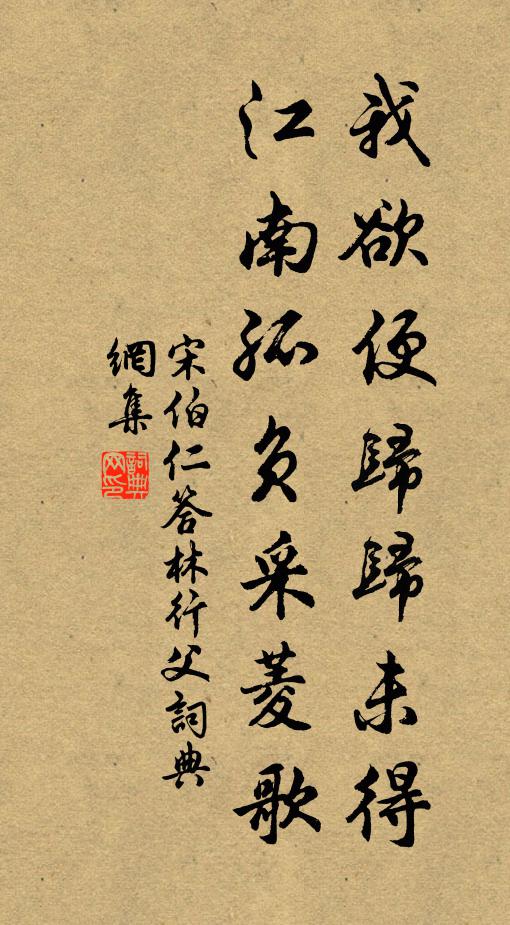 我欲便歸歸未得
江南孤負采菱歌
宋伯仁答林行父詞典
網集
詞典網印